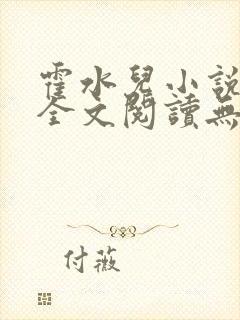 霍水兒小說
全文閱讀無
付薇